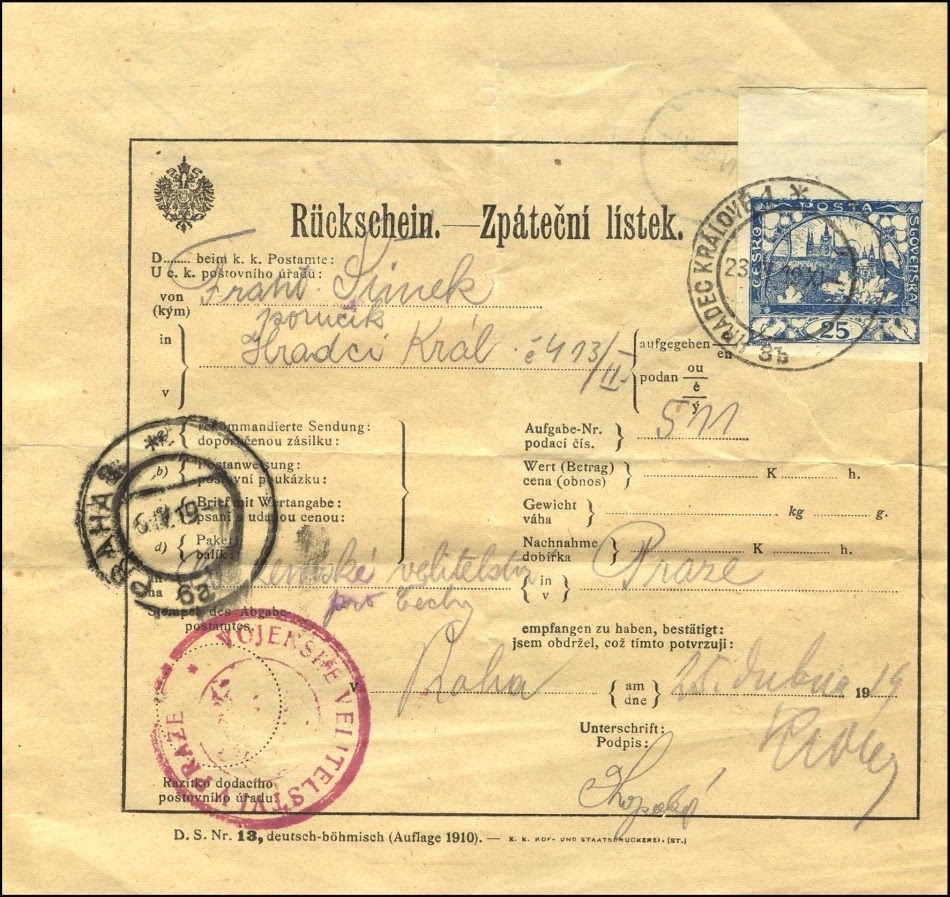 Rückschein.—Zpáteční lístek.
D........ beim k. k. Postamte:
U c. k. poštovního úřadu:
von
(kým)
Frant Šimek
poručík
in
v
Hradci Král. č 413/II.
aufgegeben en
podan ou
é
ý
HRADEC KRÁLOVÉ 1 *
3b
POSTA
ČESKO
SLOVENSKÁ
25
a) rekommandierte Sendung:
doporučenou zásilku:
Aufgabe-Nr.
podací čís.
511
b) Postanweisung:
poštovní poukázku:
Wert (Betrag)
cena (obnos)
K h.
c) Brief mit Wertangabe:
psaní s udanou cenou:
Gewicht
váha
kg g.
d) Paket
balík:
Nachnahme
dobírka
K h.
PRAHA
6a
an
na
velitelství
pro Čechy
in
v
Praze
Stempel des Abgabe-
postamtes
empfangen zu haben, bestätigt:
jsem obdržel, což tímto potvrzuji:
VOJENSKÉ VELITELSTVÍ
V PRAZE
v
Praha
am
dne
25. dubna 1919
Unterschrift:
Podpis:
Razítko dodacího
poštovního úřadu:
D. S. Nr. 13, deutsch-böhmisch (Auflage 1910). — K. K. HOF- UND STAATSDRUCKEREI. (ST.)